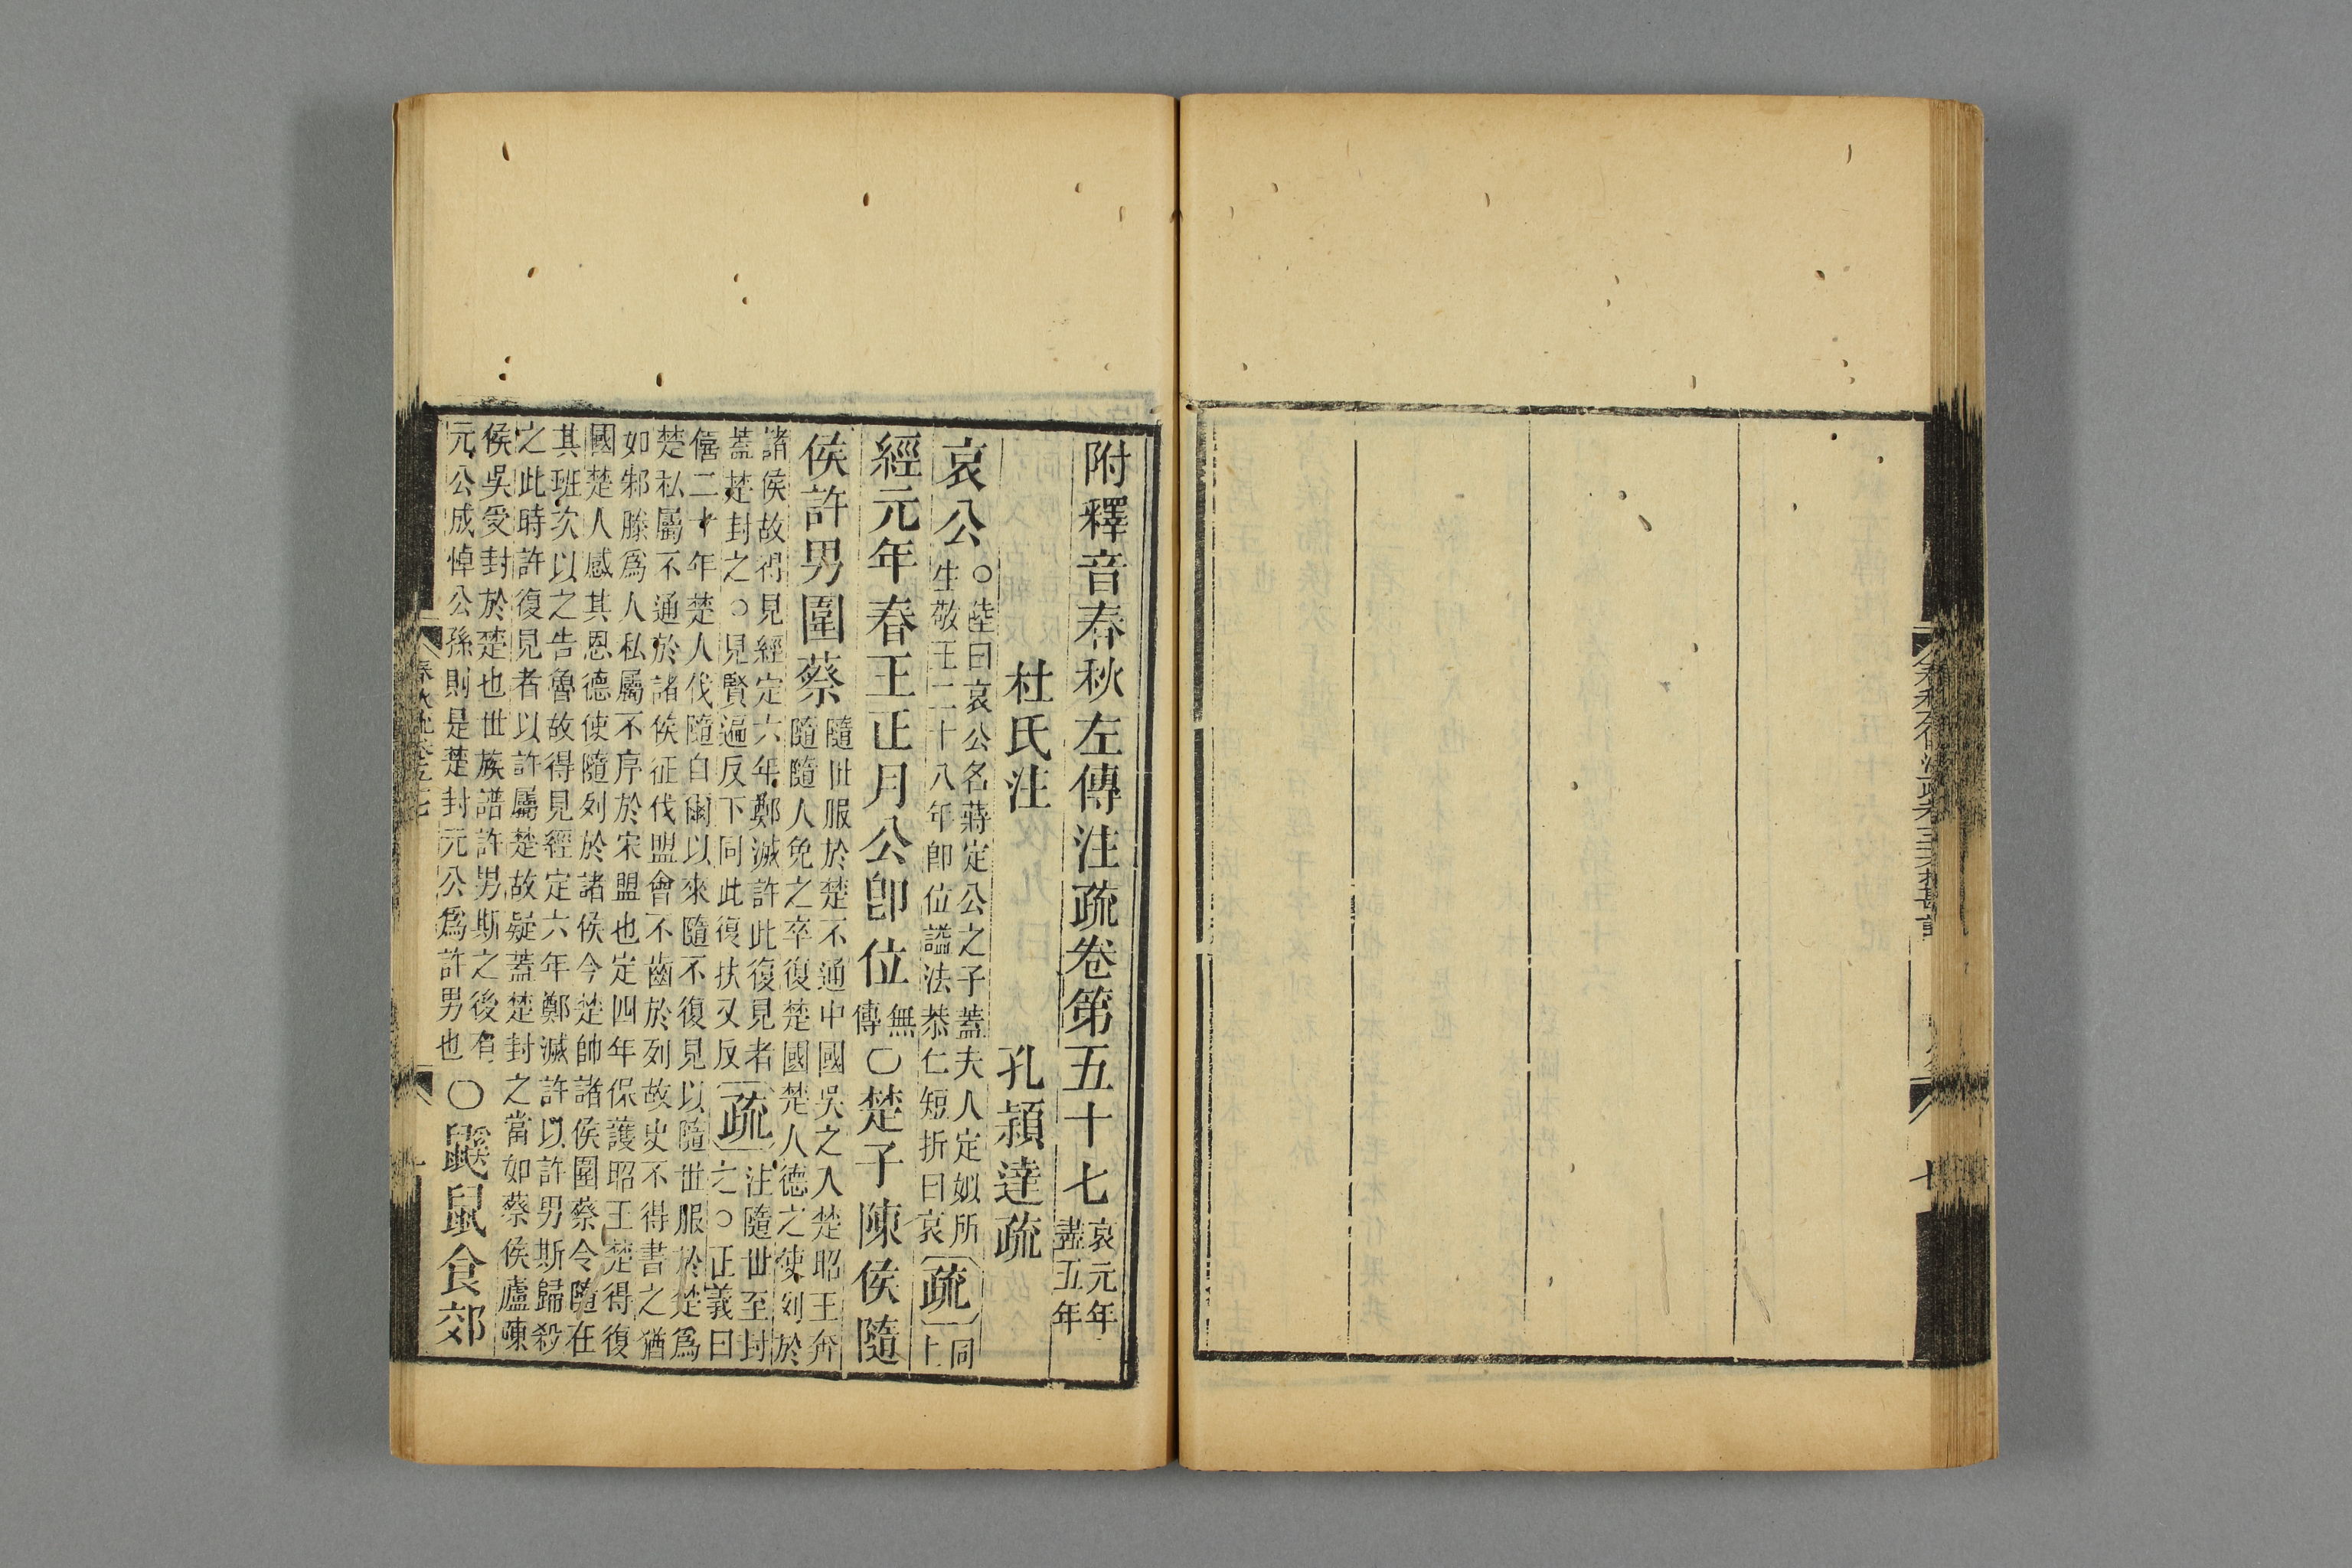 附釋音春秋左傳注疏卷第五十七
哀元年
盡五年
杜氏注　孔穎達疏
哀公
○陸曰哀公名蔣定公之子蓋夫人定姒所
生敬王二十八年卽位諡法恭仁短折曰哀
疏
同
上
經元年春王正月公卽位
無
傳
○楚子陳侯隨
侯許男圍蔡
隨世服於楚不通中國吳之入楚昭王奔
隨隨人免之卒復楚國楚人德之使列於
諸侯故得見經定六年鄭滅許此復見者
蓋楚封之○見賢遍反下同此復扶又反
疏
注隨世至封
之○正義曰
僖二十年楚人伐隨自爾以來隨不復見以隨世服於楚爲
楚私屬不通於諸侯征伐盟會不齒於列故史不得書之猶
如邾滕爲人私屬不序於宋盟也定四年保護昭王楚得復
國楚人感其恩德使隨列於諸侯今楚帥諸侯圍蔡令隨在
其班次以之告魯故得見經定六年鄭滅許以許男斯歸殺
之此時許復見者以許屬楚故疑蓋楚封之當如蔡侯廬陳
侯吳受封於楚也世族譜許男斯之後有
元公成悼公孫則是楚封元公爲許男也
○鼷鼠食郊